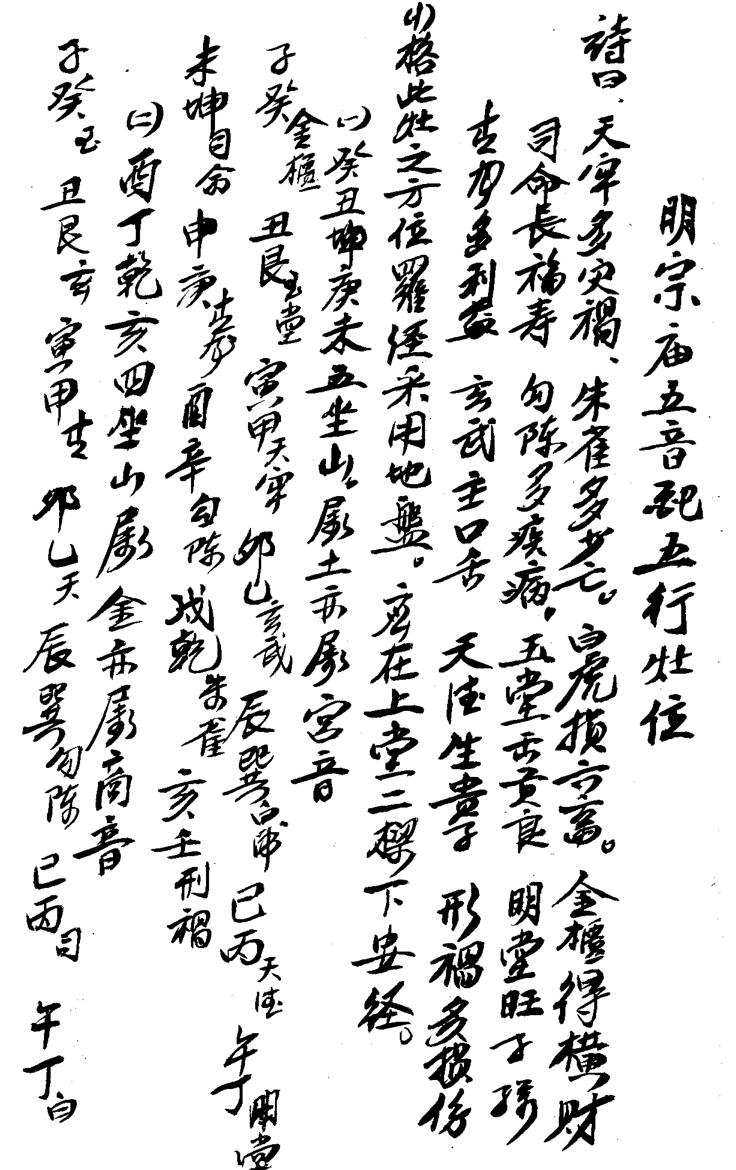 明宗庙五音配五行灶位
詩曰、天牢多灾禍、朱雀多少亡。白虎损六畜。金櫃得横财
司命長福寿 勾陈多疾病。玉堂出贡良 明堂旺子孫
青龙多利益 玄武主口舌 天德生貴子 形禍多损傷
(1)格此灶之方位羅径采用地盤。齐在上堂二樑下安径。
(一)癸丑坤庚未五坐山属土亦属宫音
子癸金櫃 丑艮玉堂 寅甲天牢 卯乙玄武 辰巽白虎 巳丙天德 午丁明堂
未坤司命 申庚青龙 酉辛勾陈 戌乾朱雀 亥壬刑禍
(二)酉丁乾亥四坐山属金亦属商音
子癸玉 丑艮玄 寅甲青 卯乙天 辰巽勾陈 巳丙司 午丁白